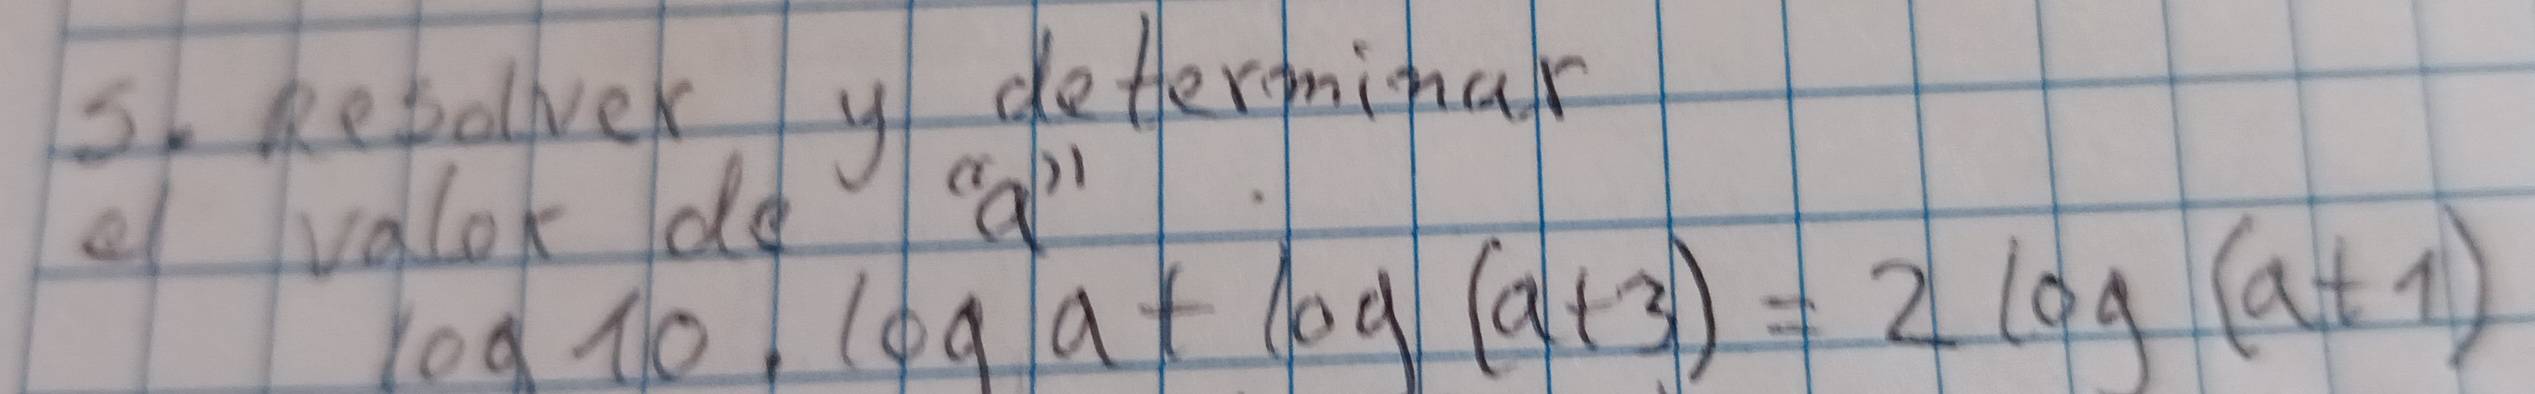 5. Resolver y determinar
el valor de "a".
log 10 . log a + log (a+3) = 2 log (a+1)